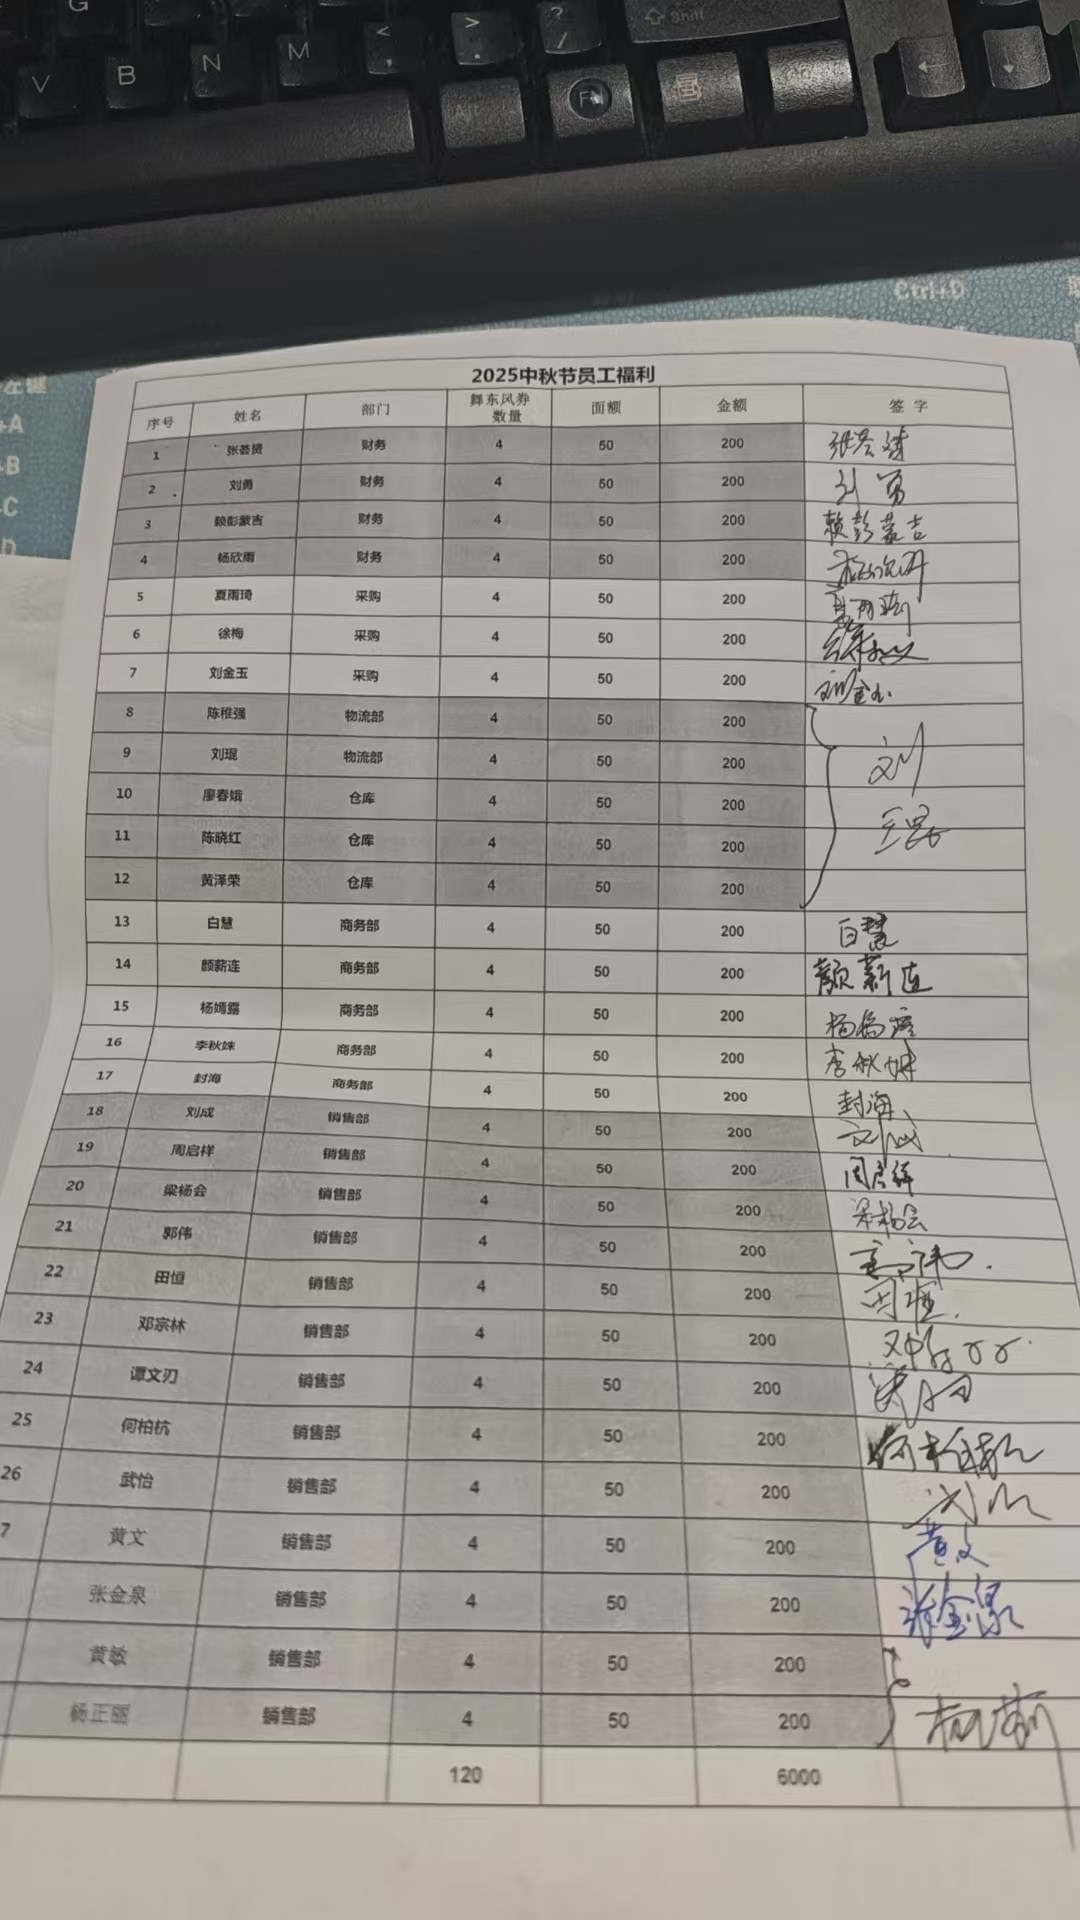 G
V B N M < , > . ? / Shift
Alt Fn
Ctrl+D
左键
+A
+B
+C
D
2025中秋节员工福利
序号 姓名 部门 舞东风券数量 面额 金额 签字
1 张荟赟 财务 4 50 200
2 刘勇 财务 4 50 200 刘勇
3 赖彭蒙吉 财务 4 50 200 赖彭蒙吉
4 杨欣雨 财务 4 50 200 杨欣雨
5 夏雨琦 采购 4 50 200 夏雨琦
6 徐梅 采购 4 50 200 徐梅
7 刘金玉 采购 4 50 200 刘金玉
8 陈稚强 物流部 4 50 200
9 刘琨 物流部 4 50 200 刘
10 廖春娥 仓库 4 50 200 琨
11 陈晓红 仓库 4 50 200
12 黄泽荣 仓库 4 50 200
13 白慧 商务部 4 50 200 白慧
14 颜薪连 商务部 4 50 200 颜薪连
15 杨嫣露 商务部 4 50 200 杨嫣露
16 李秋姝 商务部 4 50 200 李秋姝
17 封海 商务部 4 50 200 封海
18 刘成 销售部 4 50 200 刘成
19 周启样 销售部 4 50 200
20 梁杨会 销售部 4 50 200 梁杨会
21 郭伟 销售部 4 50 200
22 田恒 销售部 4 50 200 田恒
23 邓宗林 销售部 4 50 200
24 谭文刃 销售部 4 50 200
25 何柏杭 销售部 4 50 200 何柏杭
26 武怡 销售部 4 50 200
7 黄文 销售部 4 50 200 黄文
张金泉 销售部 4 50 200 张金泉
黄敏 销售部 4 50 200
杨正丽 销售部 4 50 200
120 6000